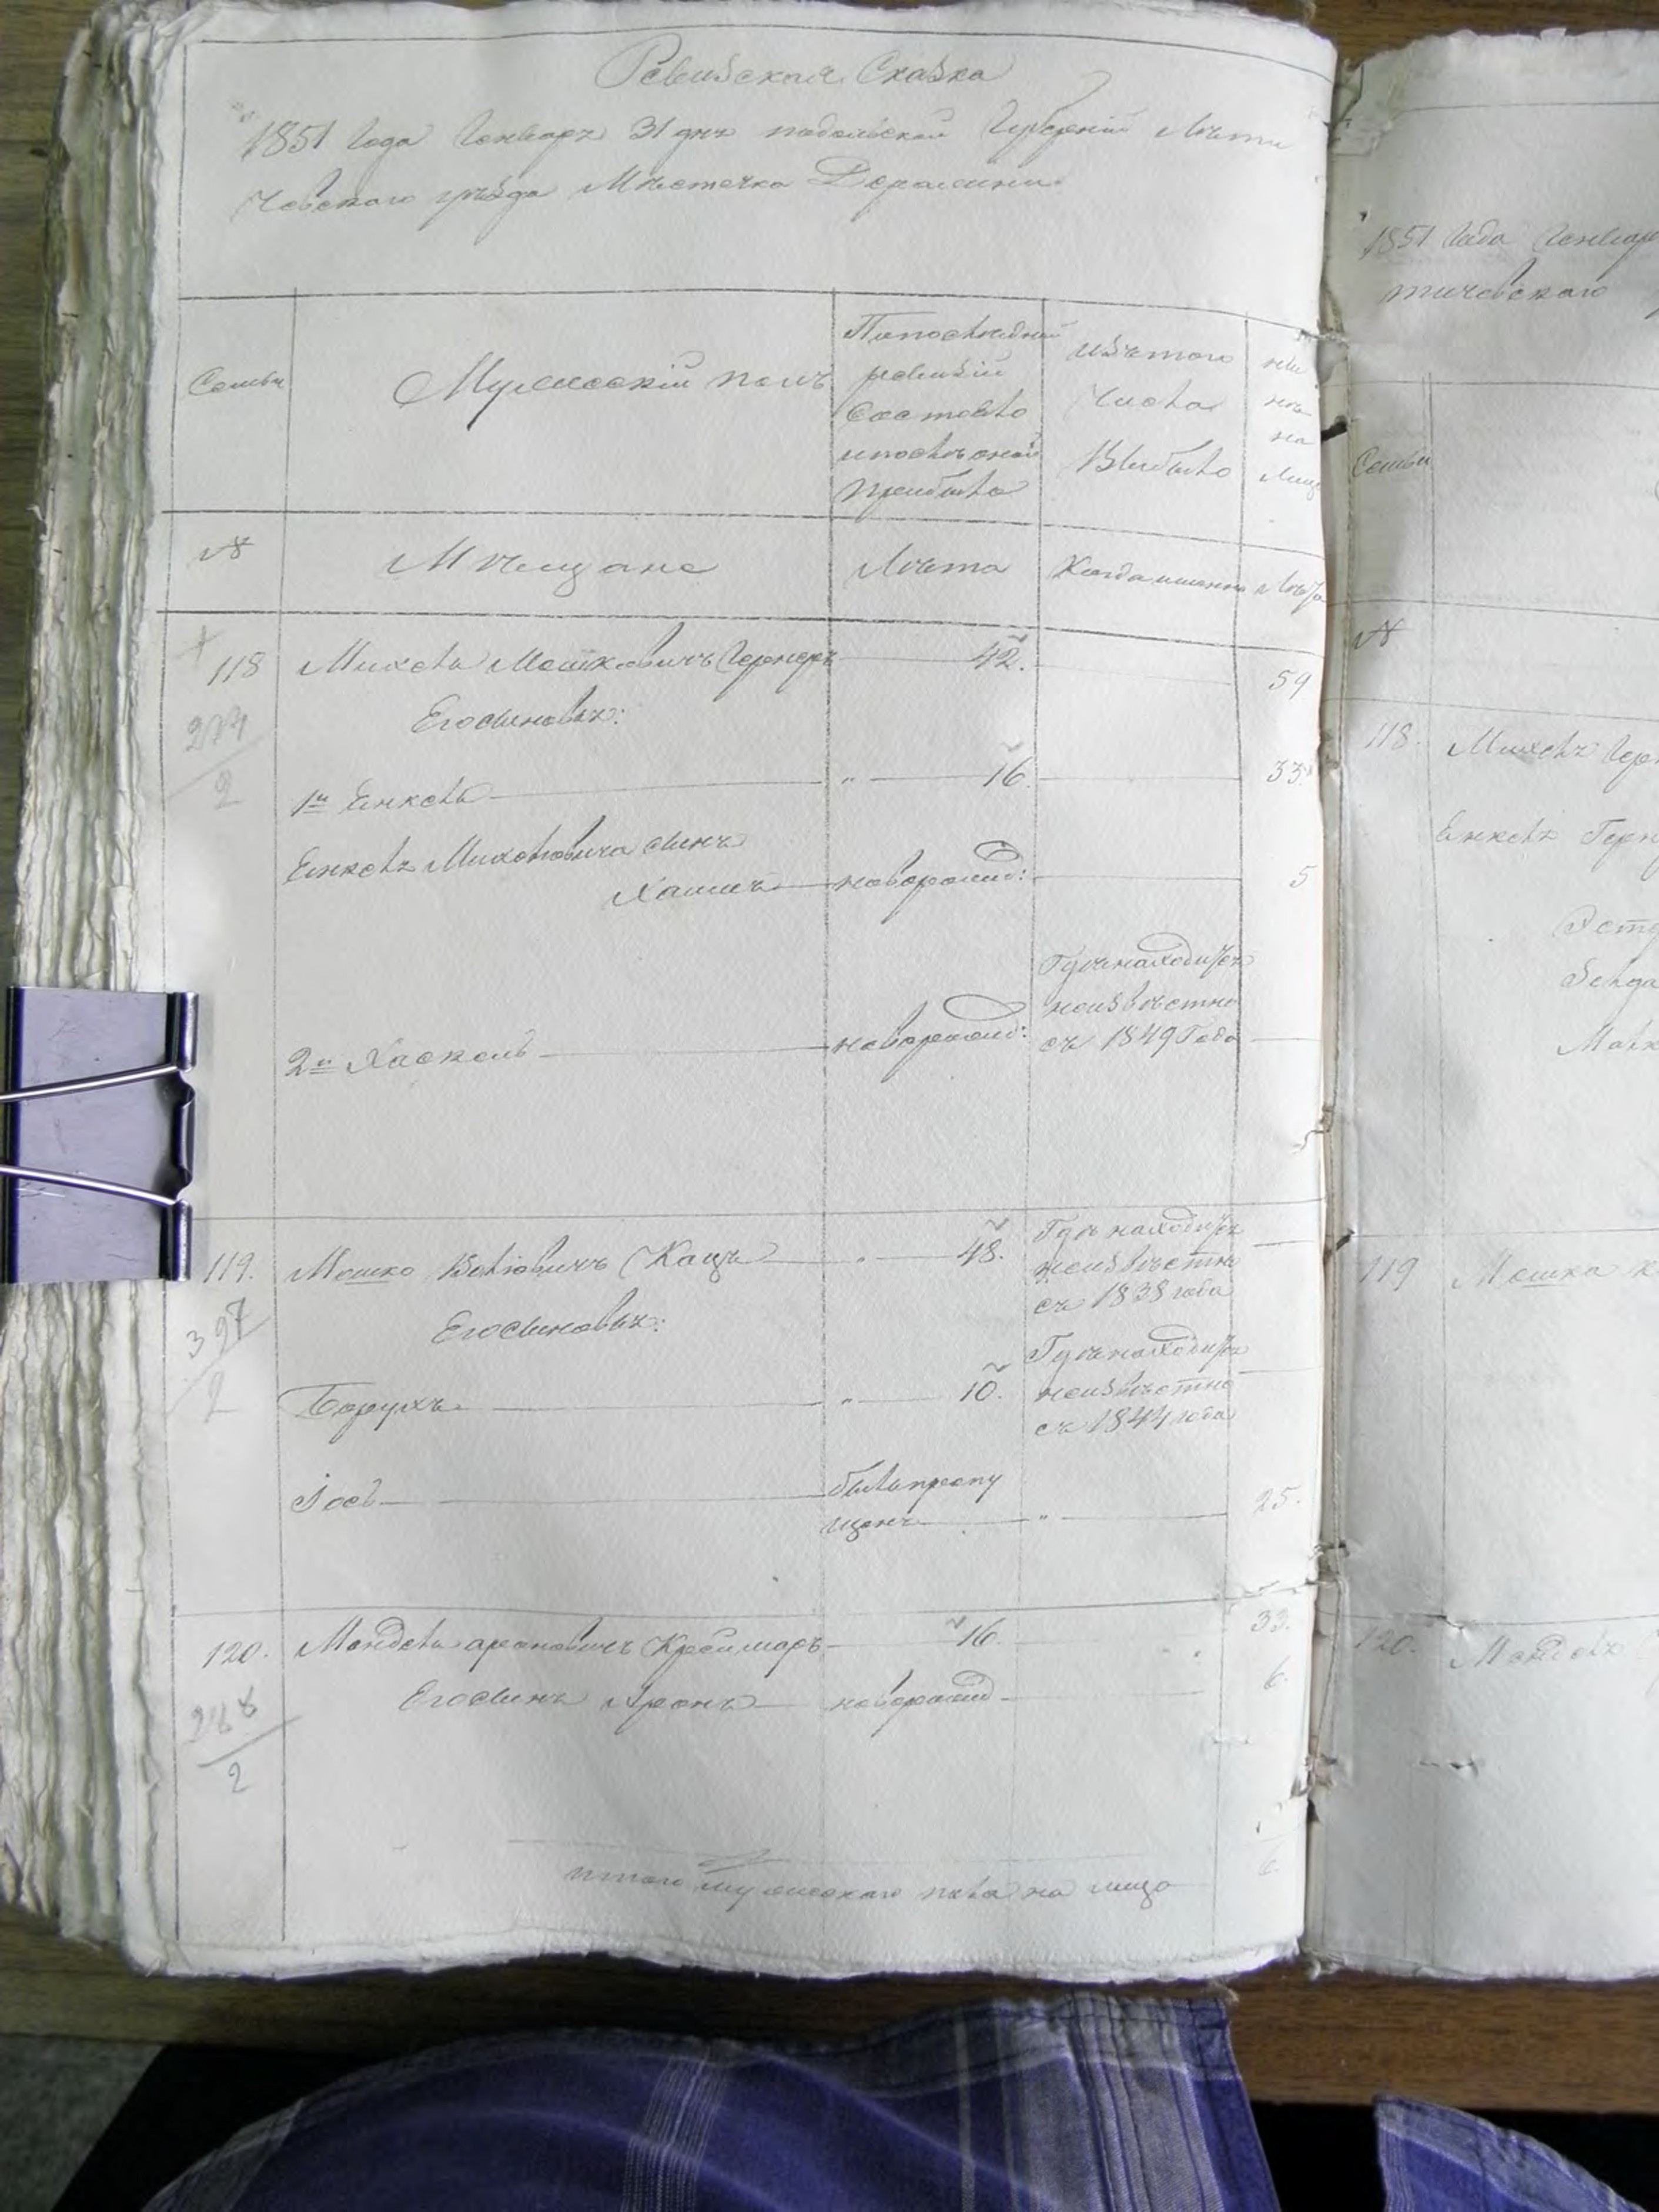 Ревизская Сказка
1851 Года Генваря 31 дня подольской Губерний Лѣти
Чевскаго уѣзда Мѣстечка Деражни
Семьи
Мужескій полъ
Попослѣдней
ревизіи
Состояло
ипослѣ оной
Прибыло
Изътого
Числа
Выбыло
ны
нѣ
на
Лицо
№
Мѣщане
Лѣта
Когда именно
Лѣта
118
Михель Мошковичъ Гернеръ
42.
59
Егосыновья:
274
2
1й Енкель
16
33
Енкеля Михелевича сынъ
Хаимъ
новорожд:
5
2й Хаскель
новорожд:
Гдѣ находится
неизвѣстно
съ 1849 Года
119.
Мошко Волковичъ Кацъ
48.
Гдѣ находится
неизвѣстно
съ 1838 года
Егосыновья:
397
2
Борухъ
10.
Гдѣ находится
неизвѣстно
съ 1844 года
Іось
былъ пропу
щенъ
25.
120.
Мендель ароновичъ Креймаръ
16.
33.
Егосынъ Аронъ
новорожд
6.
288
2
итого мужескаго пола на лицо
6.
1851 Года Генваря
тичевскаго
Семьи
№
118.
Михеля Герн
Енкеля Герн
119
Мошка К
120.
Менделя